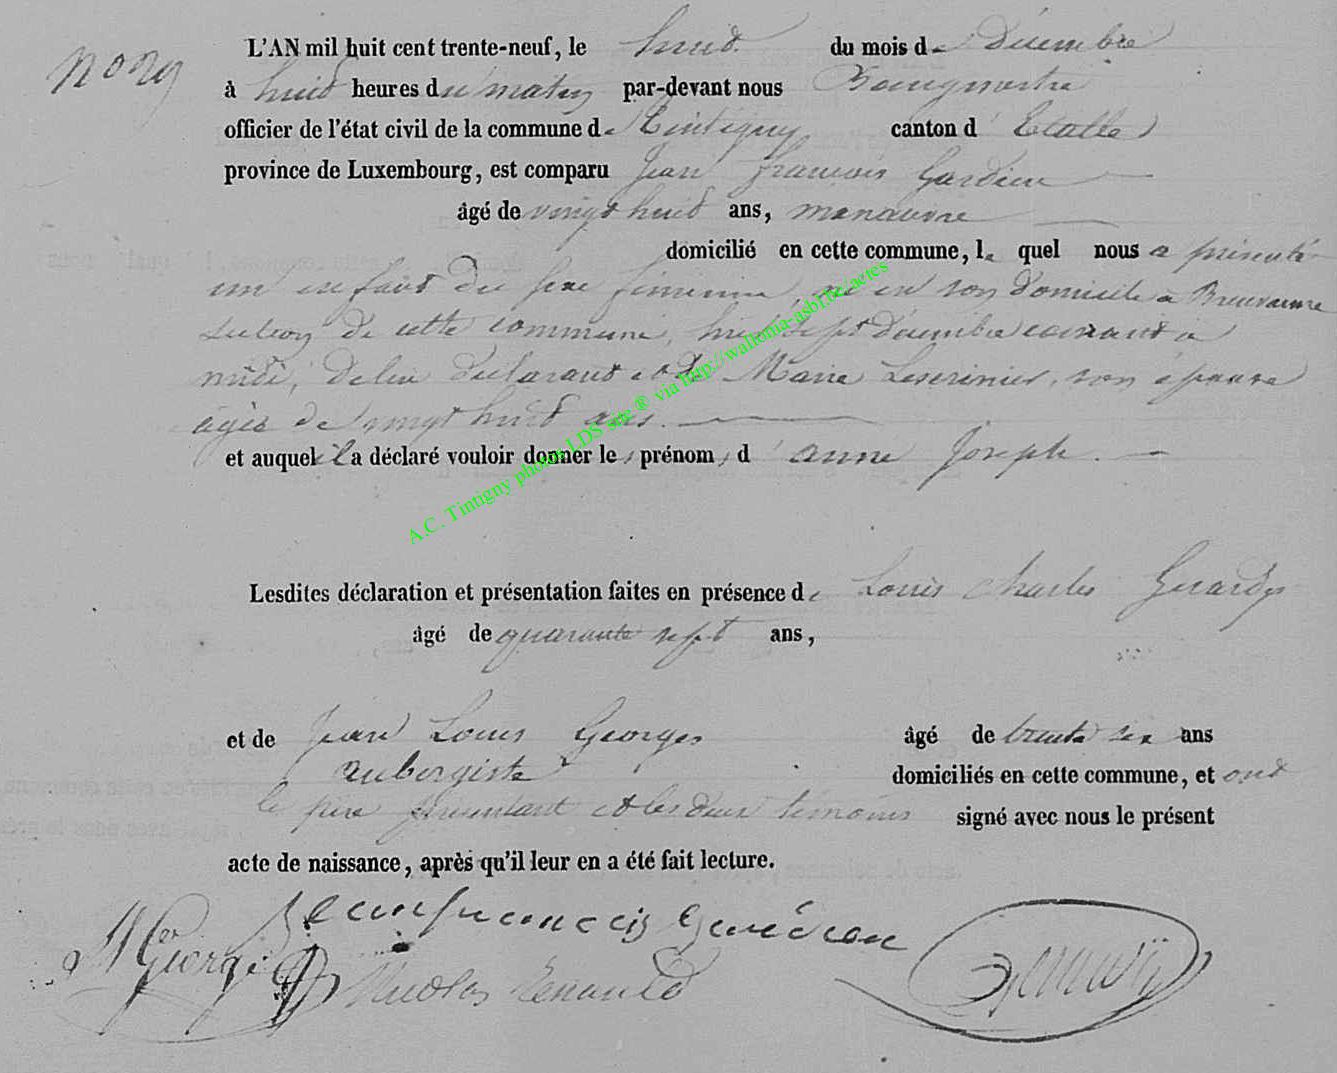 L'AN mil huit cent trente-neuf, le huid du mois de Décembre
à huid heures du matin par-devant nous Bourgmestre
officier de l'état civil de la commune de Tintigny canton d' Etalle
province de Luxembourg, est comparu Jean François Gardien
âgé de vingt huid ans, manœuvre
domicilié en cette commune, le quel nous a présenté
un enfant du sexe féminin, né en son domicile à Breuvanne
section de cette commune, hier sept décembre courant à
midi, de lui déclarant et de Marie son épouse
agée de vingt huid ans.
et auquel il a déclaré vouloir donner les prénoms d' anne Joseph.
Lesdites déclaration et présentation faites en présence de Louis Charles Gerardy
âgé de quarante sept ans,
et de Jean Louis Georges âgé de trente six ans
aubergiste domiciliés en cette commune, et ont
le père présentant et les deux témoins signé avec nous le présent
acte de naissance, après qu'il leur en a été fait lecture.
jeanfranccis
Nicolas
A.C. Tintigny photos LDS site ® via http://wallonia-asbl.be/actes